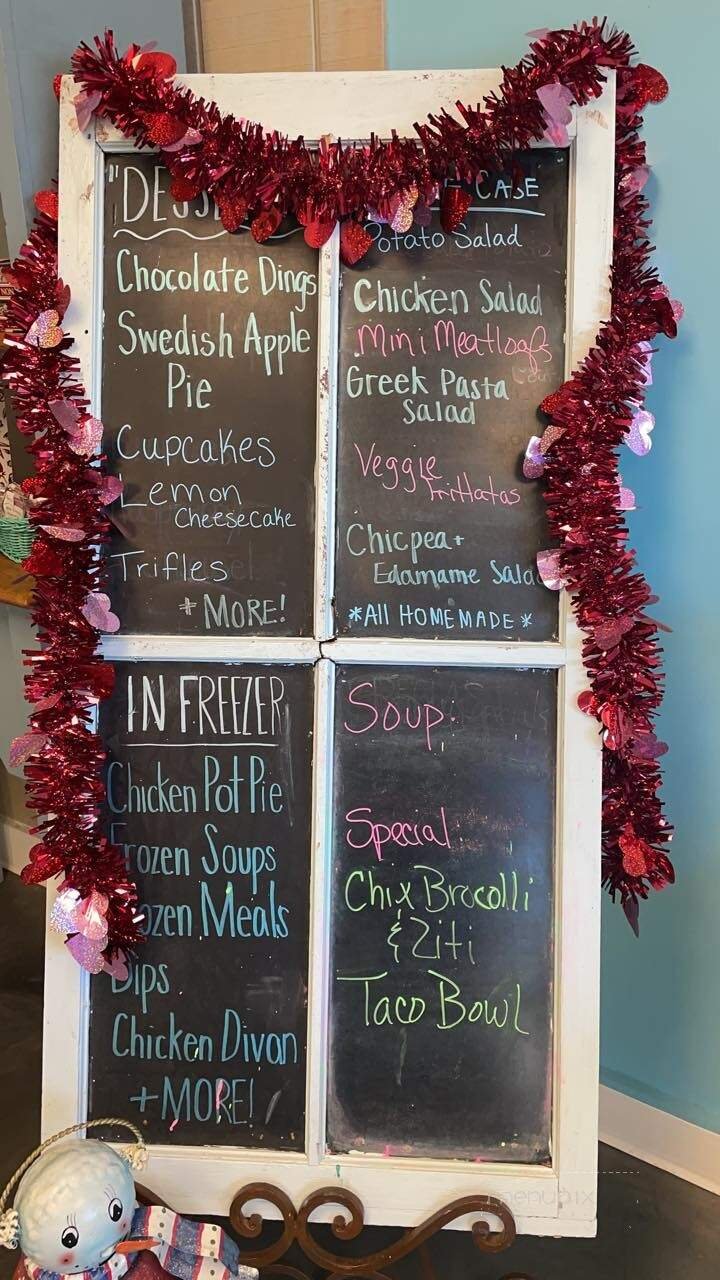 Chocolate Dings
Swedish Apple
Pie
Cupcakes
Lemon
Cheesecake
Trifles
+ MORE!
CASE
Potato Salad
Chicken Salad
Mini Meatloafs
Greek Pasta
Salad
Veggie
Frittatas
Chicpea +
Edamame Salad
*All HOMEMADE*
IN FREEZER
Chicken Pot Pie
Frozen Soups
Frozen Meals
Dips
Chicken Divan
+ MORE!
Soup:
Special:
Chix Brocolli
& Ziti
Taco Bowl
menupix